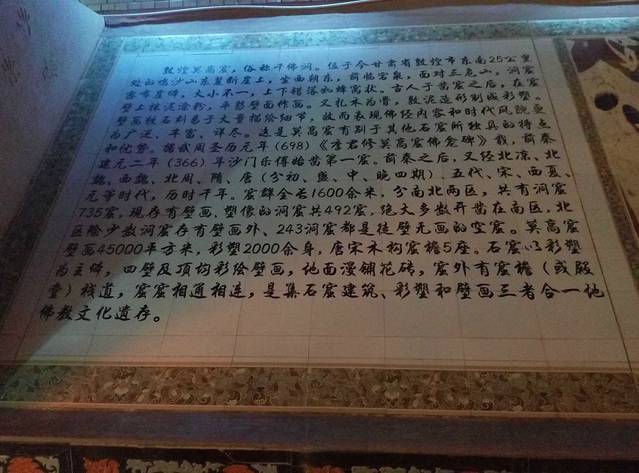 敦煌莫高窟，俗称千佛洞。位于今甘肃省敦煌市东南25公里
处的鸣沙山东麓断崖上，坐西朝东，前临宕泉，面对三危山，洞窟
密布崖体，大小不一，上下错落如蜂窝状。古人于凿窟之后，在窟
壁上抹泥涂粉，平整壁面作画。又扎木为骨，敷泥造形制成彩塑。
壁画较石刻易于大量描绘细节，故而表现佛经内容和时代风貌更
为广泛、丰富、详尽。这是莫高窟有别于其他石窟所独具的特点
和优势。据武周圣历元年（698）《李君修莫高窟佛龛碑》载，前秦
建元二年（366）年沙门乐僔始凿第一窟。前秦之后，又经北凉、北
魏、西魏、北周、隋、唐（分初、盛、中、晚四期）、五代、宋、西夏、
元等时代，历时千年。窟群全长1600余米，分南北两区，共有洞窟
735窟，现存有壁画、塑像的洞窟共492窟，绝大多数开凿在南区，北
区除少数洞窟存有壁画外、243洞窟都是徒壁无画的空窟。莫高窟
壁画45000平方米，彩塑2000余身，唐宋木构窟檐5座。石窟以彩塑
为主体，四壁及顶均彩绘壁画，地面漫铺花砖，窟外有窟檐（或殿
堂）栈道，窟窟相通相连，是集石窟建筑、彩塑和壁画三者合一地
佛教文化遗存。